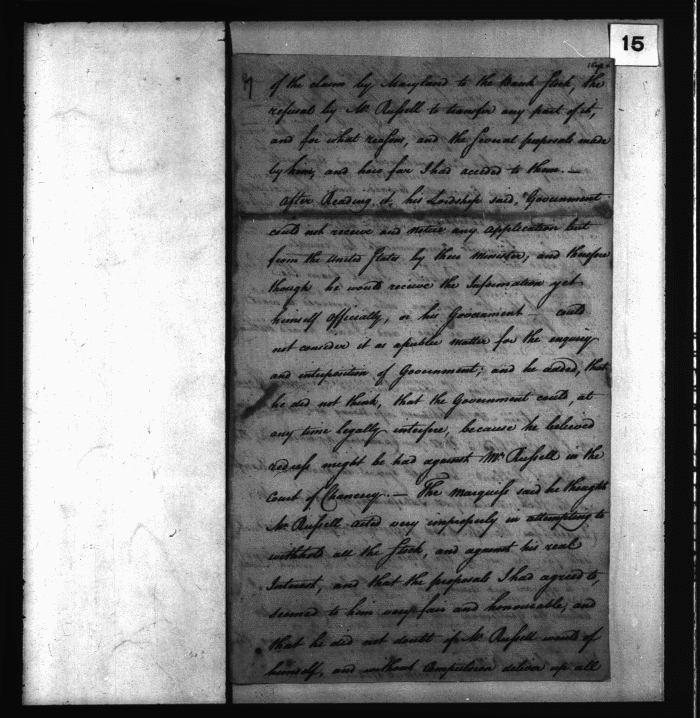 15
of the claim by Maryland to the Bank Stock, the
refusal by Mr. Russell to transfer any part of it,
and for what reason, and the several proposals made
by him, and how far I had acceded to them. —
After Reading it, his Lordship said, "Government
could not receive and notice any application but
from the United States by their Minister; and therefore
though he would receive the Information yet
himself officially, or his Government — could
not consider it as a public matter for the enquiry
and interposition of Government; and he added, that
he did not think, that the Government could, at
any time legally interfere, because he believed
redress might be had against Mr. Russell in the
Court of Chancery. — The Marquess said he thought
Mr. Russell acted very improperly in attempting to
withhold all the Stock, and against his real
Interest, and that the proposals I had agreed to,
seemed to him very fair and honourable; and
that he did not doubt if Mr. Russell would of
himself, and without Compulsion deliver up all